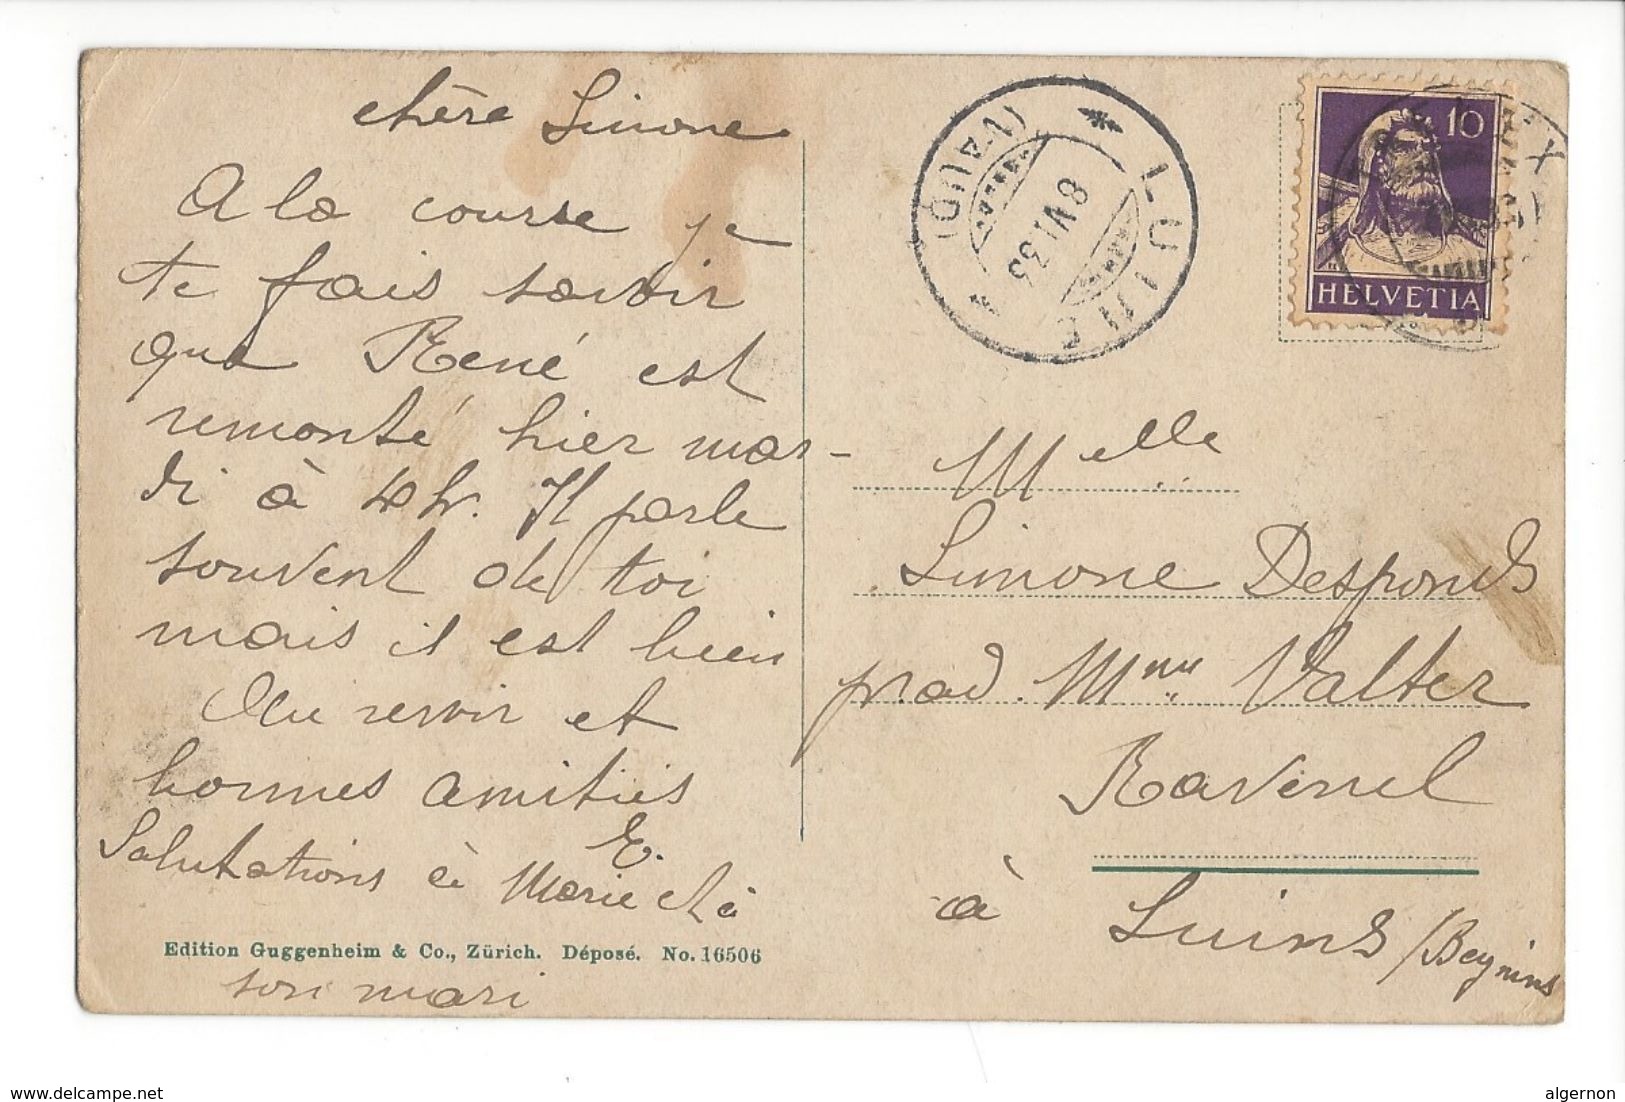 chère Simone
A la course je
te fais savoir
que René est
remonté hier mar-
di à 4 h. Il parle
souvent de toi
mais il est bien
Au revoir et
bonnes amitiés
E.
Salutations à Marie et à
son mari
Edition Guggenheim & Co., Zürich. Déposé. No. 16506
LUINS
(VAUD)
8 VI 33
10
HELVETIA
Melle
Simone Desponds
prad. Mme Valter
Ravenel
à Luins / Begnins
www.delcampe.net
algernon